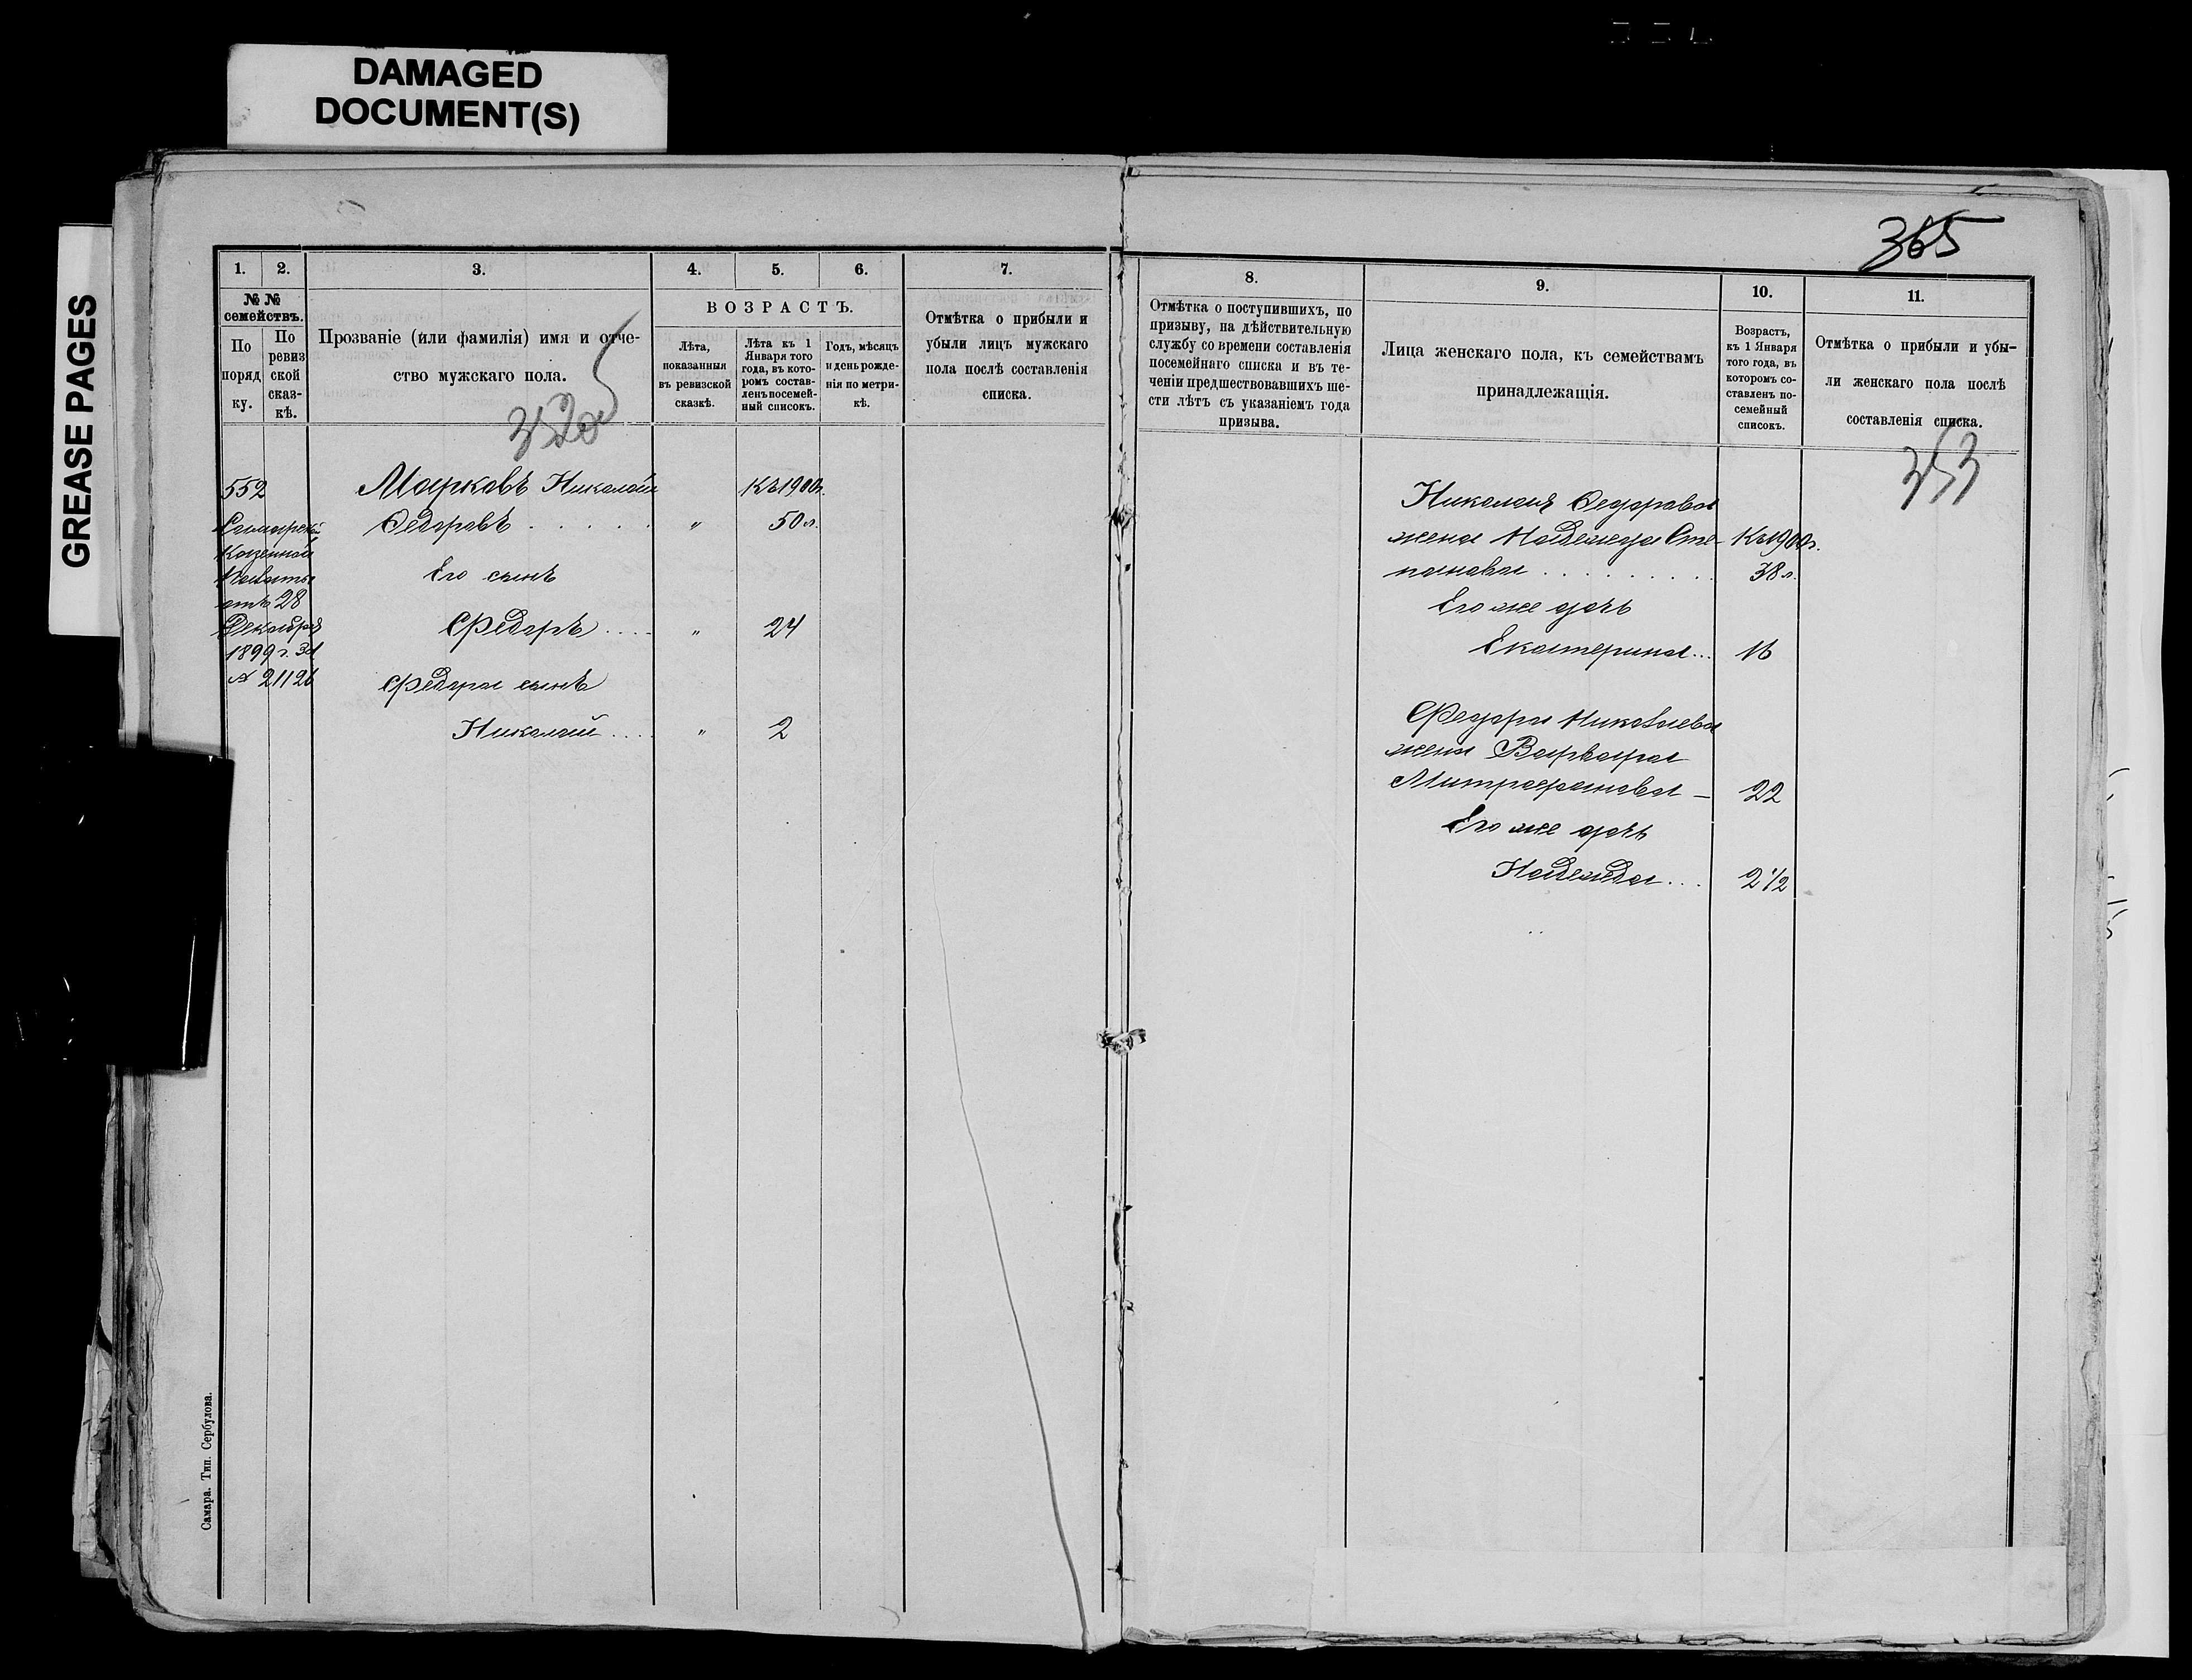 DAMAGED
DOCUMENT(S)
GREASE PAGES
365
1.
2.
3.
4.
5.
6.
7.
№ №
семействъ.
По
поряд
ку.
По
ревиз
ской
сказ-
кѣ.
Прозваніе (или фамилія) имя и отче-
ство мужскаго пола.
ВОЗРАСТЪ.
Лѣта,
показанныя
въ ревизской
сказкѣ.
Лѣта къ 1
Января того
года, въ кото-
ромъ состав-
ленъ посемей-
ный списокъ.
Годъ, мѣсяцъ
и день рожде-
нія по метри-
кѣ.
Отмѣтка о прибыли и
убыли лицъ мужскаго
пола послѣ составленія
списка.
552
Самарской
Казенной
Палаты
отъ 28
Декабря
1899 г. за
№ 21126
Марковъ Николай
Ѳедоровъ . . . . .
Его сынъ
Ѳедоръ ....
Ѳедора сынъ
Николай ....
"
"
"
Къ 1900 г.
50 л.
24
2
Самара. Тип. Сербулова.
8.
9.
10.
11.
Отмѣтка о поступившихъ, по
призыву, на дѣйствительную
службу со времени составленія
посемейнаго списка и въ те-
ченіи предшествовавшихъ ше-
сти лѣтъ съ указаніемъ года
призыва.
Лица женскаго пола, къ семействамъ
принадлежащія.
Возрастъ,
къ 1 Января
того года, въ
которомъ со-
ставленъ по-
семейный
списокъ.
Отмѣтка о прибыли и убы-
ли женскаго пола послѣ
составленія списка.
353
Николая Ѳедорова
жена Надежда Сте-
панова . . . . . . . . .
Его же дочь
Екатерина...
Федора Николаева
жена Варвара
Митрофанова –
Его же дочь
Надежда...
Къ 1900 г.
38 л.
16
22
2 1/2